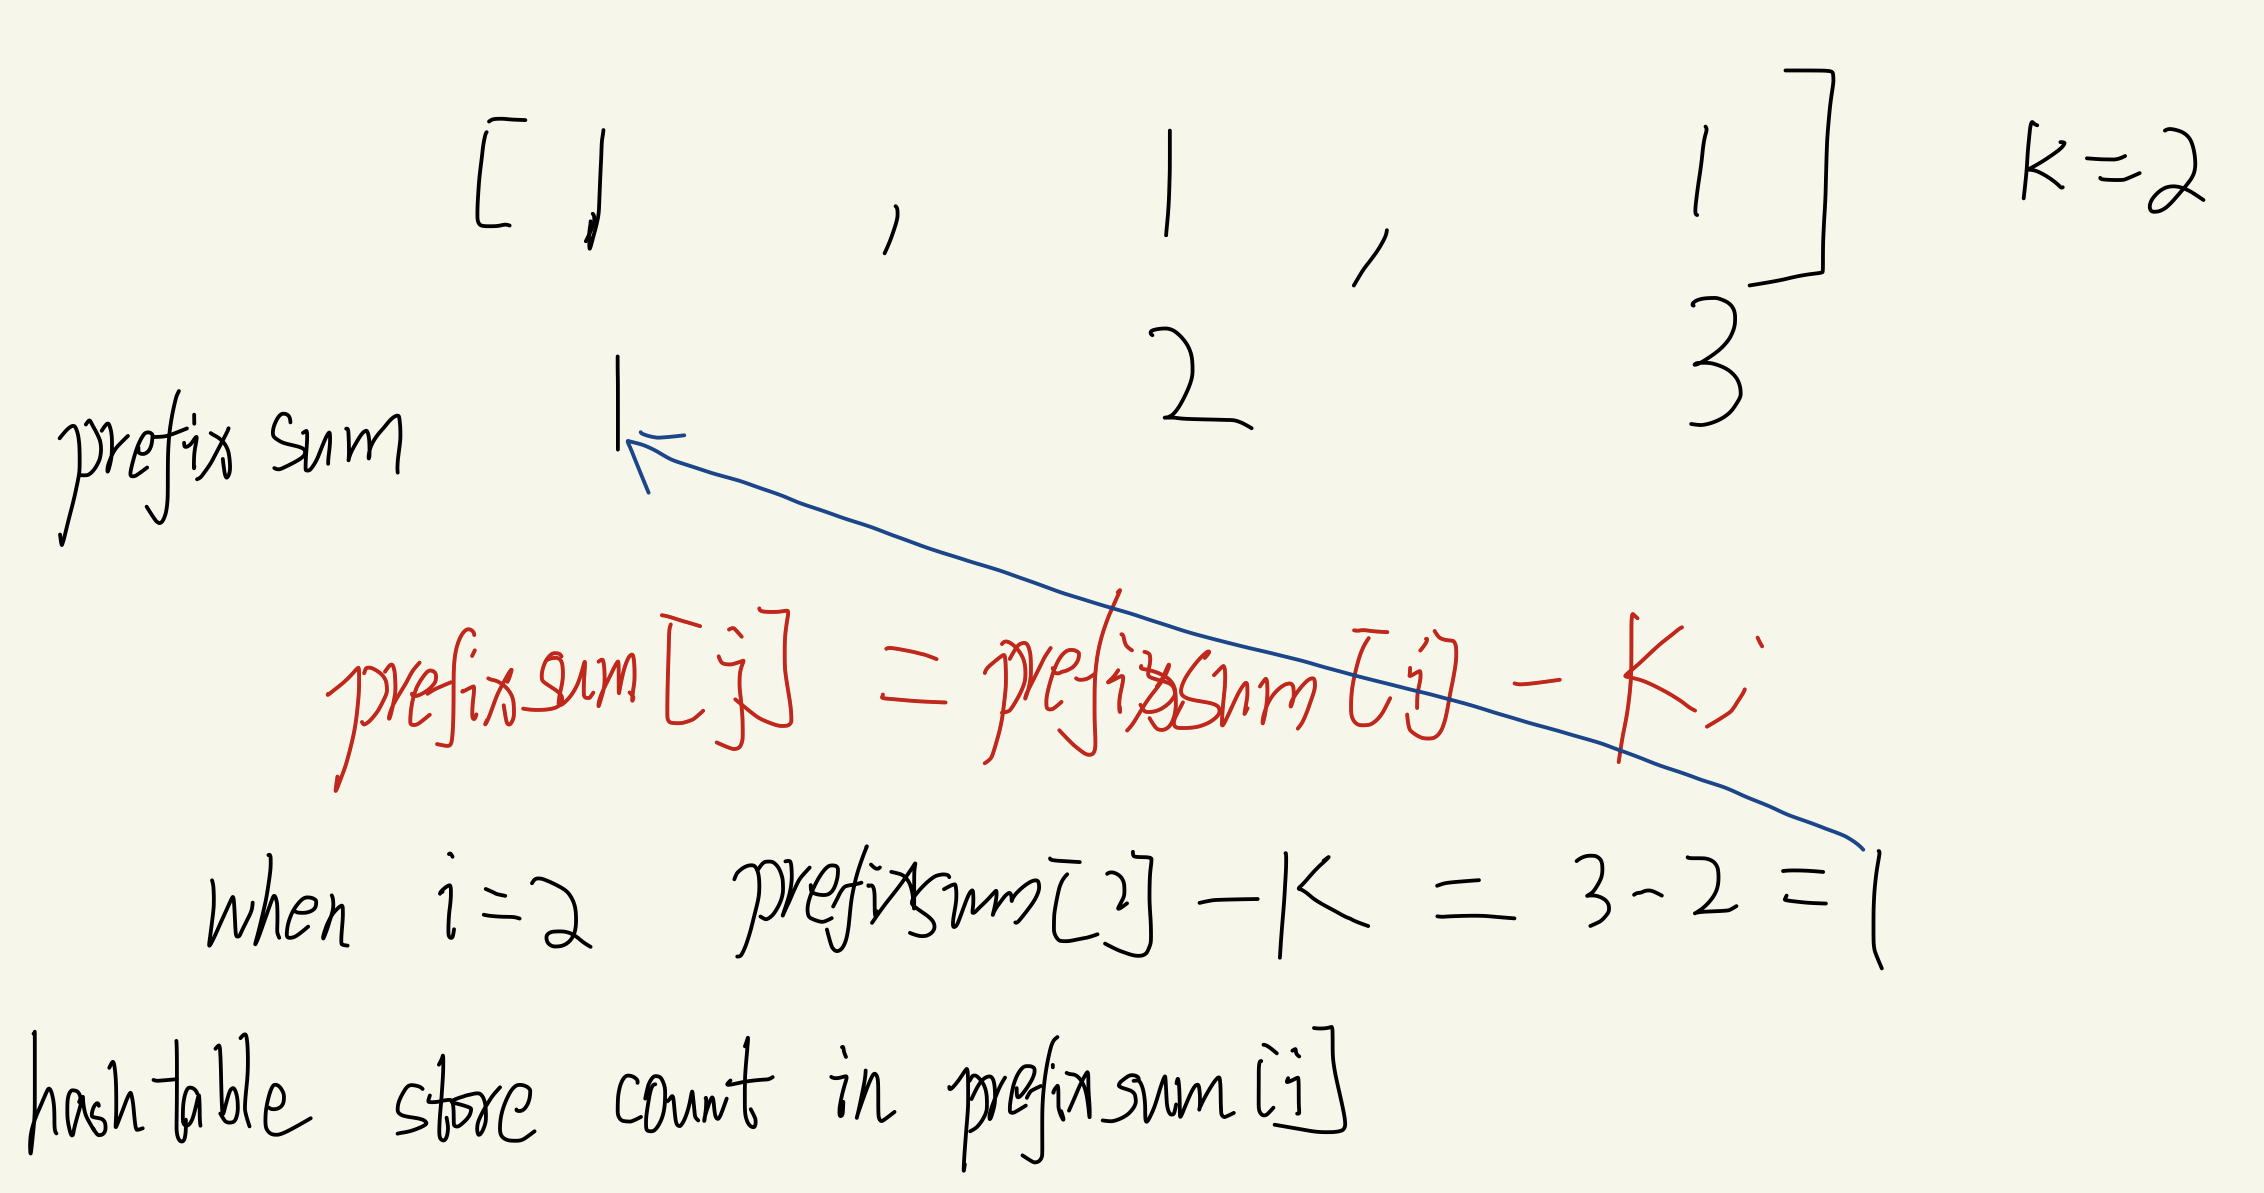 [1, 1, 1] K=2
prefix sum 1 2 3
prefixsum[j] = prefixsum[i] - K;
when i=2 prefixsum[2] - K = 3-2=1
hashtable store count in prefixsum[i]